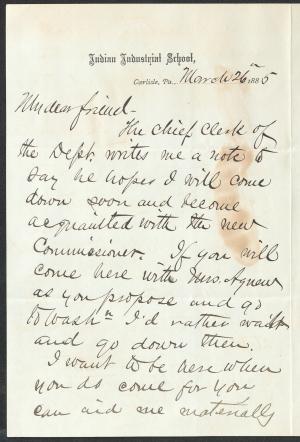 Indian Industrial School,
Carlisle, Pa., March 26th 1885
My dear friend -
The chief clerk of
the Dept. writes me a note to
say he hopes I will come
down soon and become
acquainted with the new
Commissioner. If you will
come here with Mrs. Agnew
as you propose and go
to Washn I'd rather wait
and go down then.
I want to be here when
you do come for you
can aid me materially